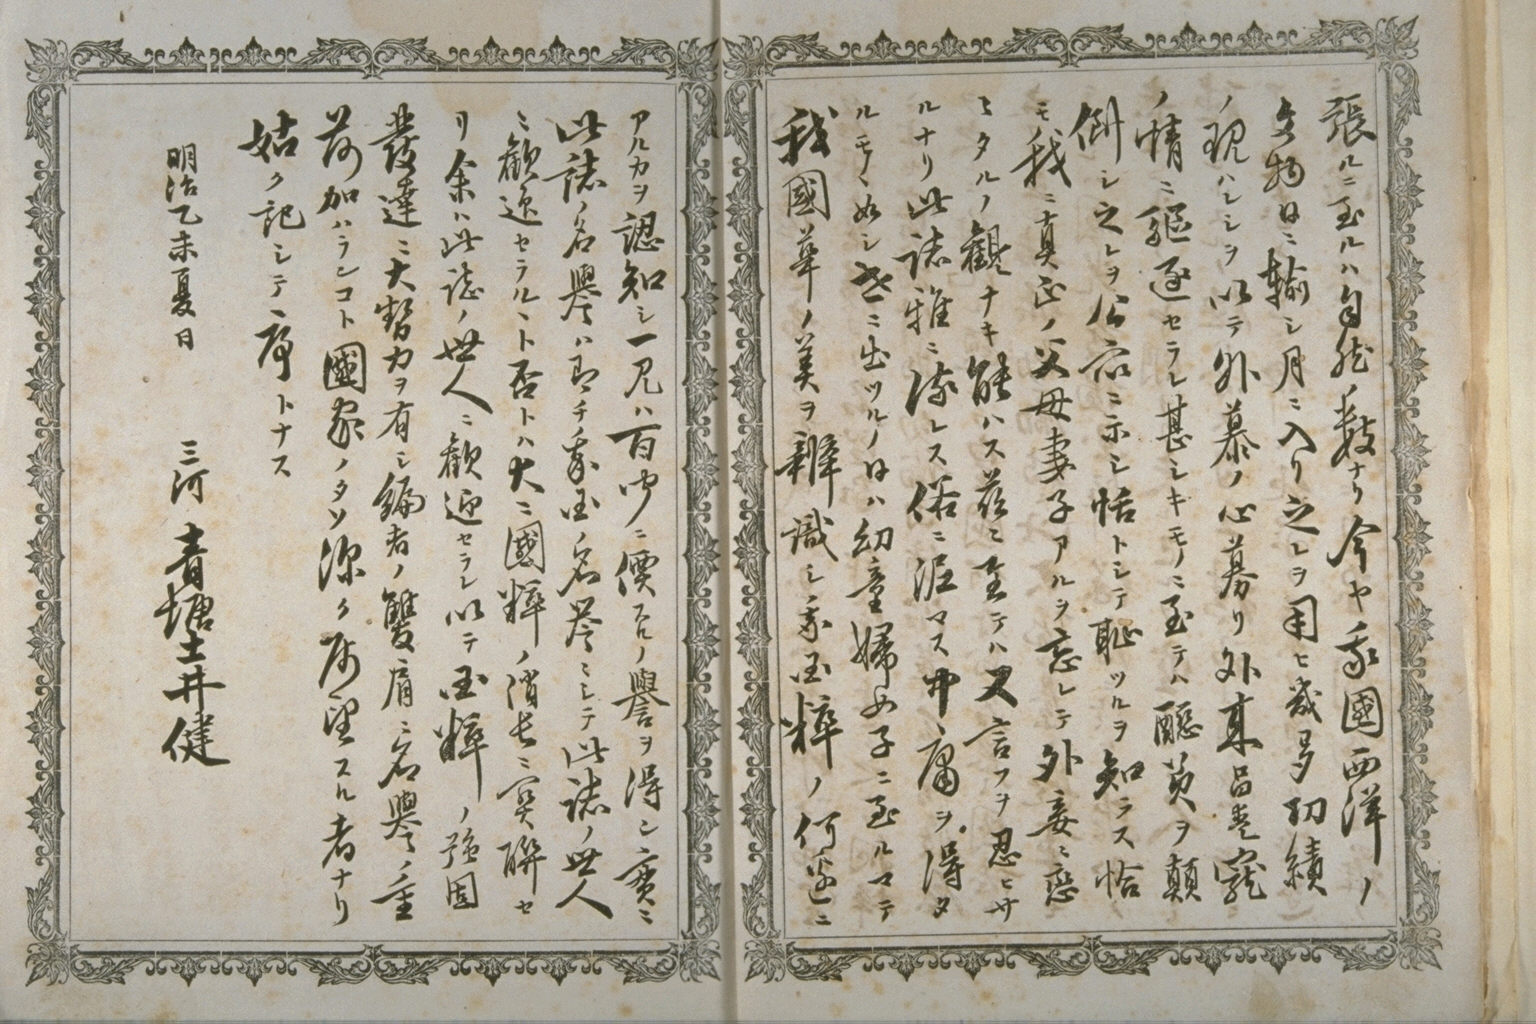 張ルニ至ルハ自然ノ数ナリ今ヤ我國西洋ノ
文物日ニ輸シ月ニ入リ之レヲ用ヒ歳多功績
ノ現ハシシヲ以テ外慕ノ心募リ外来品愛寵
ノ情ニ驅逐セラレ甚シキモノニ至テハ醜美ヲ顛
倒シ之レヲ公衆ニ示シ恬トシテ恥ツルヲ知ラス恰
モ我ニ真正ノ父母妻子アルヲ忘レテ外妾ニ戀
々タルノ觀ナキ能ハス茲ニ至テハ又言フヲ忍ヒサ
ルナリ此誌雅ニ流レス俗ニ泥マス中庸ヲ得タ
ルモノヽ如シ世ニ出ツルノ日ハ幼童婦女子ニ至ルマテ
我國華ノ美ヲ辨識シ我国粹ノ何邊ニ
アルカヲ認知シ一見ハ百聞ニ價スルノ譽ヲ得ン實ニ
此誌ノ名譽ハ即チ我国ノ名誉ニシテ此誌ノ世人
ニ歡迎セラルヽト否トハ大ニ國粹ノ消長ニ関聯セ
リ余ハ此誌ノ世人ニ歡迎セラレ以テ国粹ノ強固
發達ニ大勢力ヲ有シ編者ノ雙肩ニ名譽ノ重
荷加ハランコト國家ノタメ深ク希望スル者ナリ
姑ク記シテ序トナス
明治乙未夏日
三河 青塘土井健